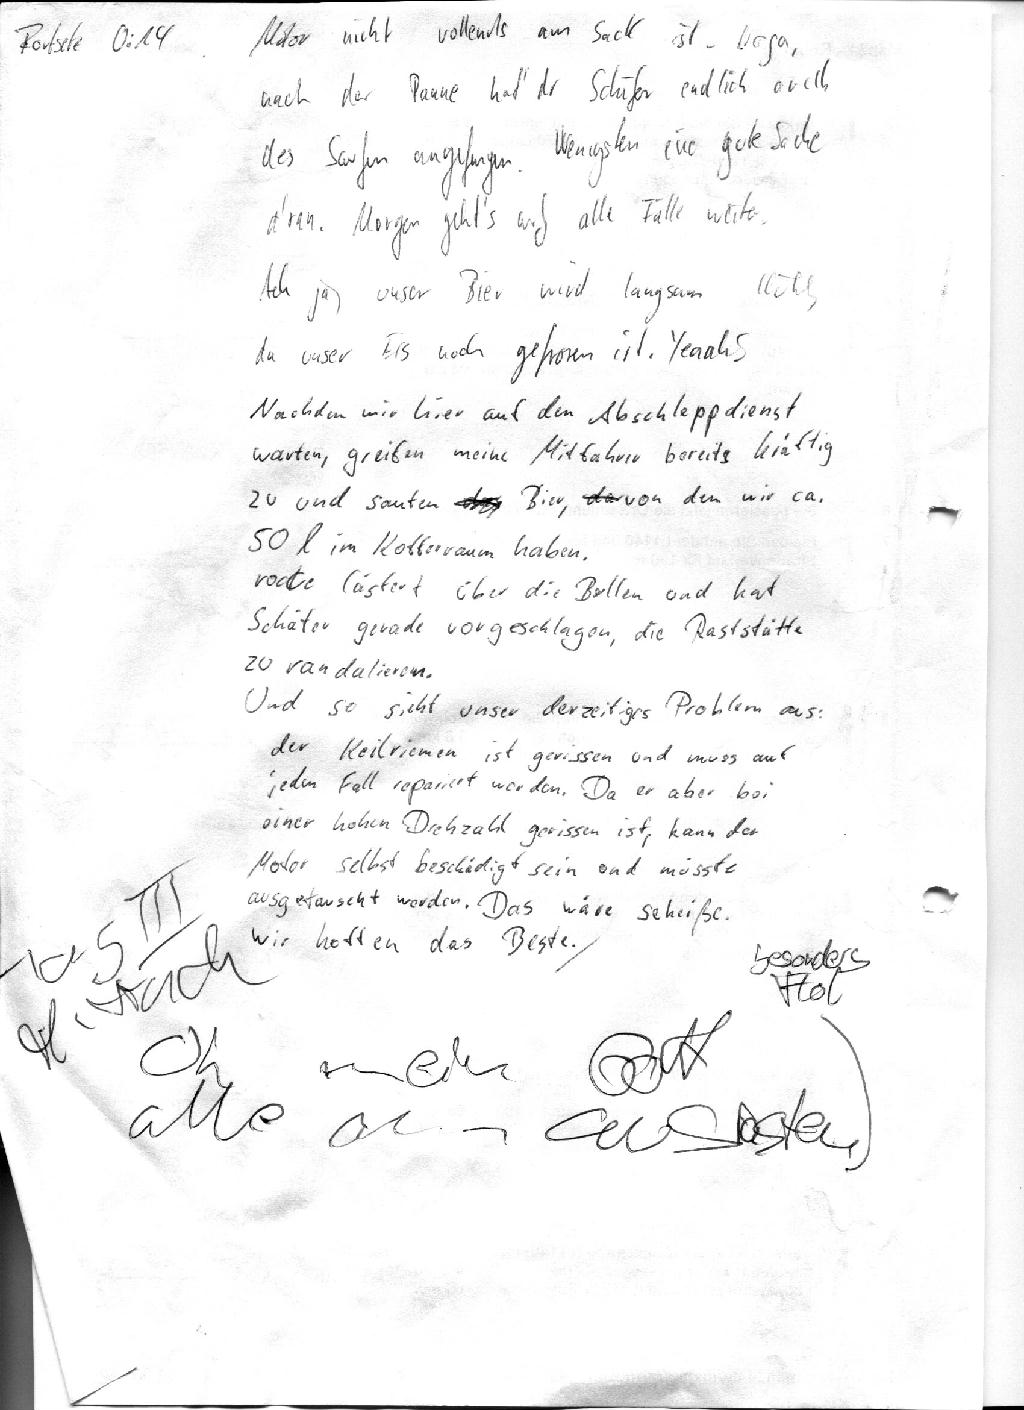 0:14 Motor nicht vollends am Sack ist.
nach der Panne hat dr Schäfer endlich auch
des Saufen angefangen. Wenigsten eine gute Sache
d'ran. Morgen geht's auf alle Fälle weiter.
Ach ja, unser Bier wird langsam kühl,
da unser Eis noch gefroren ist. Yeaah
Nachdem wir hier auf den Abschleppdienst
warten, greifen meine Mitfahrer bereits kräftig
zu und saufen Bier, von dem wir ca.
50 l im Kofferraum haben.
lästert über die Bullen und hat
Schäfer gerade vorgeschlagen, die Raststätte
zu randalieren.
Und so sieht unser derzeitiges Problem aus:
der Keilriemen ist gerissen und muss auf
jeden Fall repariert werden. Da er aber bei
einer hohen Drehzahl gerissen ist, kann der
Motor selbst beschädigt sein und müsste
ausgetauscht werden. Das wäre scheiße.
Wir hoffen das Beste.
besonders
Flo
III
Oh mein Gott
alle am ausrasten